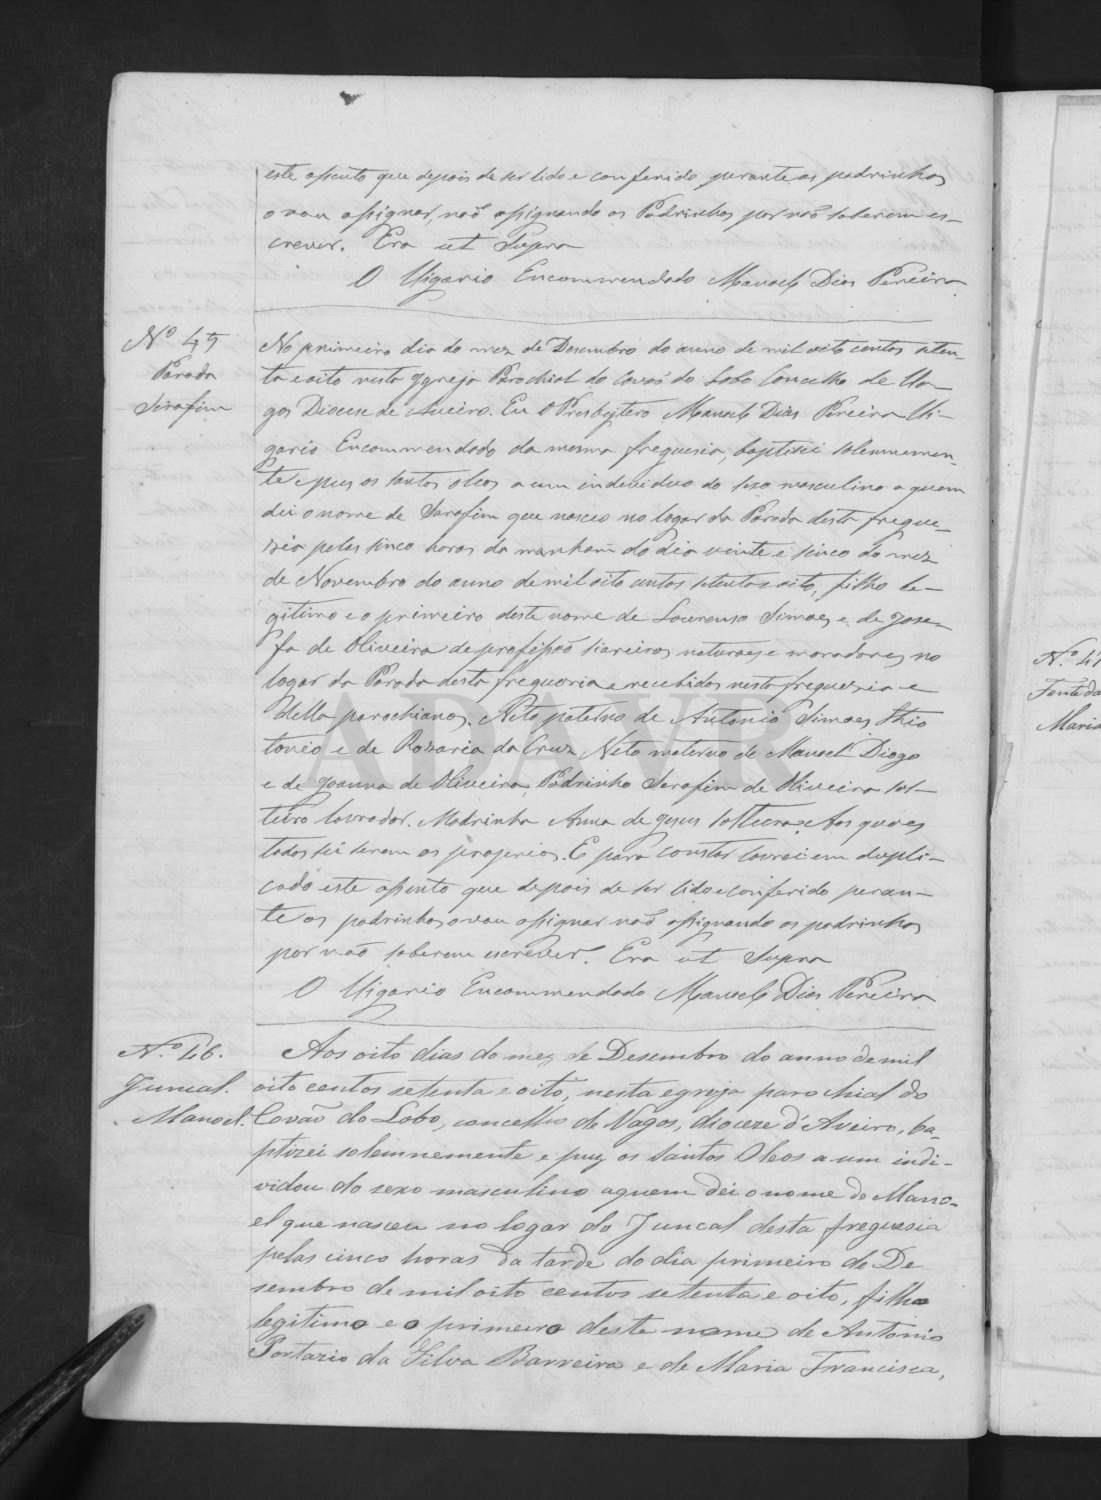 este assento que depois de ser lido e conferido perante os padrinhos
o vou assignar, naõ assignando os Padrinhos por naõ saberem es-
crever. Era ut Supra
O Vigario Encommendado Manoel Dias Pereira
Nº 45
Parada
Serafim
No primeiro dia do mez de Desembro do anno de mil oito centos seten-
ta e oito nesta Ygreja Parochial do Covaõ do Lobo Concelho de Va-
gos Diocese de Aveiro. Eu o Presbytero Manoel Dias Pereira Vi-
gario Encommendado da mesma freguesia, baptisei solemnemen-
te e pus os santos oleos a um individuo do sexo masculino a quem
dei o nome de Serafim que nasceo no logar da Parada desta fregue-
sia pelas sinco horas da manham do dia vinte e sinco do mez
de Novembro do anno de mil oito centos setenta e oito, filho le-
gitimo e o primeiro deste nome de Lourenso Simoes e de Jose-
fa de Oliveira de profissaõ naturaes e moradores no
logar da Parada desta freguesia e recebidos nesta freguezia e
della parochianos. Neto paterno de Antonio Simoes
e de Rozaria da Cruz, Neto materno de Manoel Diogo
e de Joanna de Oliveira, Padrinho Serafim de Oliveira sol-
teiro lavrador. Madrinha Anna de Jesus solteira. Aos quaes
todos sei serem os proprios. E para constar lavrei em dupli-
cado este assento que depois de ser lido e conferido peran-
te os padrinhos o vou assignar naõ assignando os padrinhos
por naõ saberem escrever. Era ut Supra
O Vigario Encommendado Manoel Dias Pereira
N.º 46.
Juncal.
Manoel.
Aos oito dias do mez de Desembro do anno de mil
oito centos setenta e oito, nesta egreja parochial do
Covaõ do Lobo, concelho de Vagos, dioceze d'Aveiro, ba-
ptizei solemnemente e puz os Santos Oleos a um indi-
vidou do sexo masculino aquem dei o nome de Mano-
el que nasceu no logar do Juncal desta freguesia
pelas cinco horas da tarde do dia primeiro de De
sembro de mil oito centos setenta e oito, filho
legitimo e o primeiro deste nome de Antonio
da Silva Barreira e de Maria Francisca,
N.º 47
Fonte do
Maria
ADAVR